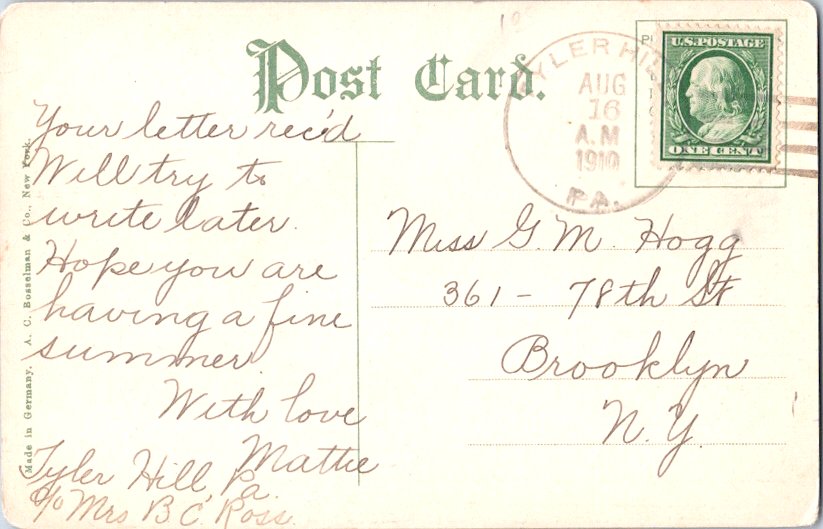 Post Card.
TYLER HILL
AUG
16
A.M
1910
PA.
U.S.POSTAGE
ONE CENT
Your letter rec'd
Will try to
write later.
Hope you are
having a fine
summer.
With love
Mattie
Tyler Hill Pa.
c/o Mrs B C Ross.
Miss G. M. Hogg
361 - 78th St
Brooklyn
N.Y.
Made in Germany. A. C. Bosselman & Co., New York.